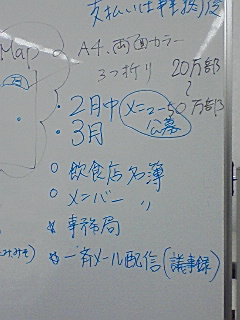 支払いは
Map
A4. 両面カラー
三つ折り 20万部
〜
・2月中 メニュー 50万部
公募
・3月
○ 飲食店名簿
○ メンバー 〃
事務局
一斉メール配信(議事録)